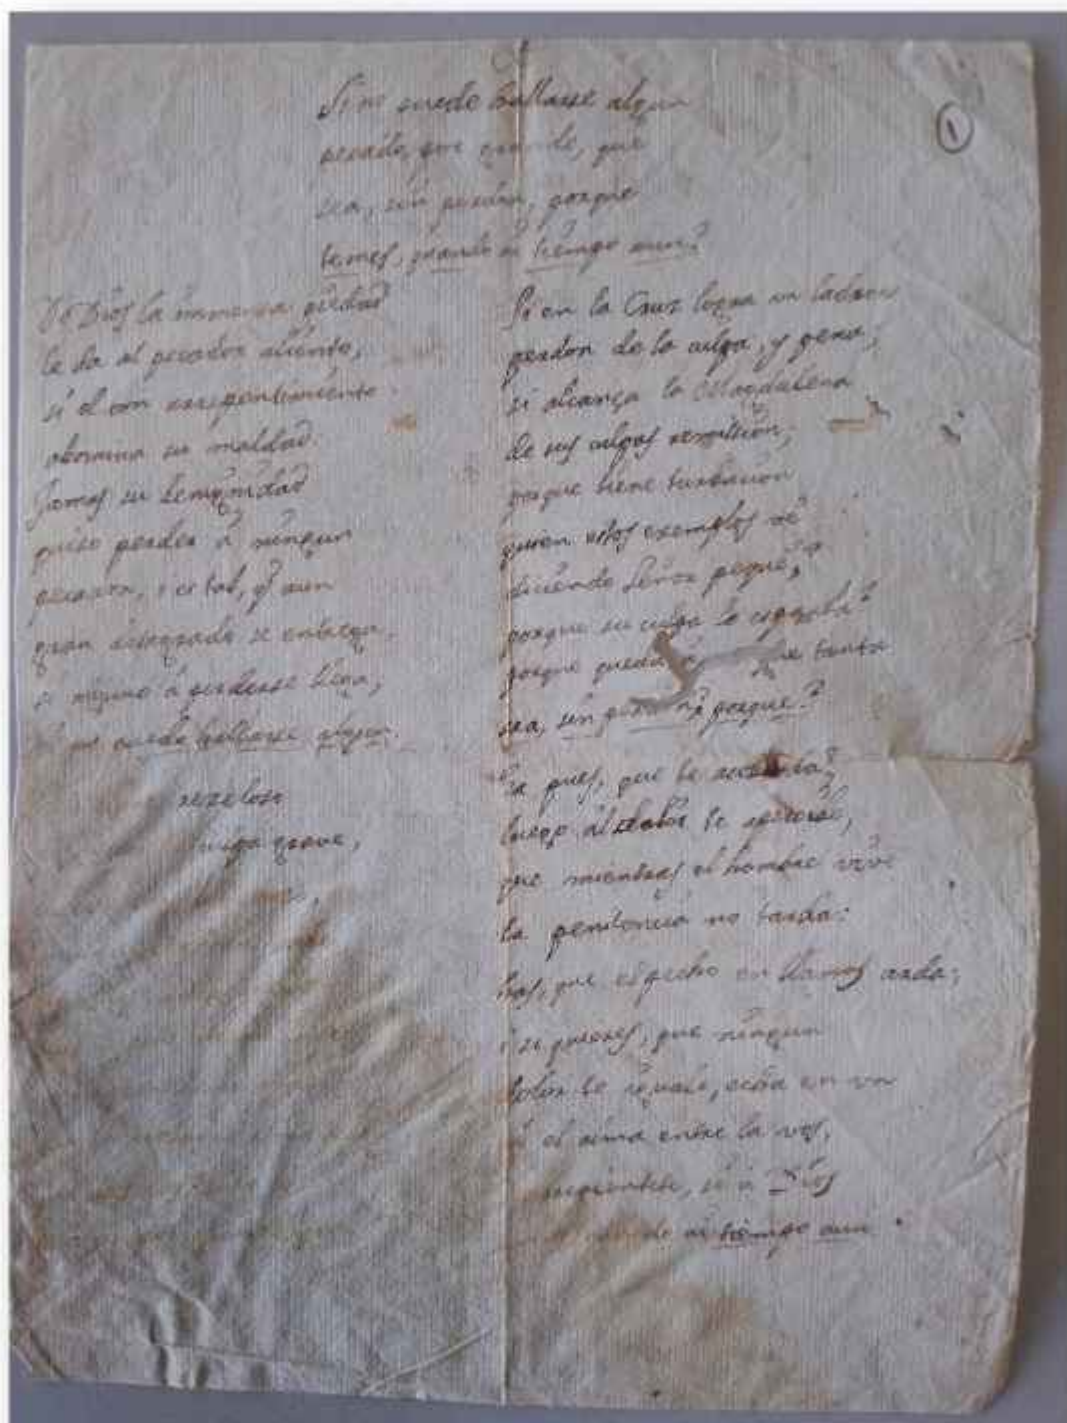 Si no puede hallarse algun
pecado, por grande, que
sea, sin perdon, porque
temes, quando ai tiempo aun?
①
De Dios la immensa piedad
le da al pecador aliento,
si el con arrepentimiento
abomina su maldad.
Jamas su benignidad
quiso perder â ningun
pecador, es tal, q̃ aun
gran
se mismo â perderse llega,
no puede hallarse algun.
rezeloso
culpa grave,
Si en la Cruz logra un ladron
perdon de la culpa, y pena;
si alcança la Magdalena
de sus culpas remission;
porque tiene turbacion
quien estos exemplos vé
diciendo Señor pequé,?
porque su culpa le espanta?
porque que tanta
sea, sin perdon? porque?
Ea pues, que te acobarda?
luego al dolor te apercibe,
que mientras el hombre vive
la penitencia no tarda:
haz, que el pecho en llamas arda;
i si quieres, que ningun
dolor te iguale, echa en un
el alma entre la voz,
si a Dios
ai tiempo aun.